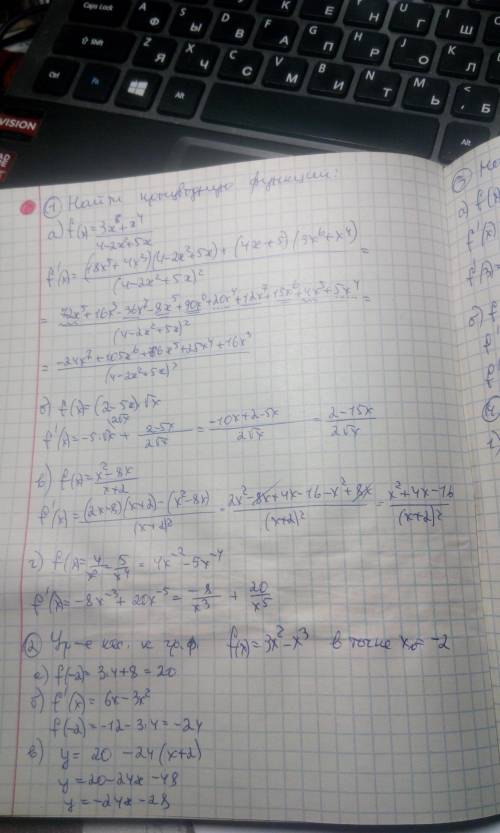 Caps Lock
Shift
Ctrl
Fn
Alt
Alt
VISION
① Найти производную функции:
а) f(x)=3x⁶+x⁴/4-2x²+5x
f'(x)=(18x⁵+4x³)(4-2x²+5x)+(4x+5)(3x⁶+x⁴)/(4-2x²+5x)² =
= 72x⁵+16x³-36x⁷-8x⁵+90x⁶+20x⁴+12x⁷+15x⁶+4x⁵+5x⁴/(4-2x²+5x)² =
= -24x⁷+105x⁶+ x⁵+25x⁴+16x³/(4-2x²+5x)²
б) f(x)=(2-5x)√x
f'(x)=-5·√x+2-5x/2√x=-10x+2-5x/2√x=2-15x/2√x
в) f(x)=x²-8x/x+2
f'(x)=(2x+8)(x+2)-(x²-8x)/(x+2)²=2x²-8x+4x-16-x²+8x/(x+2)²=x²+4x-16/(x+2)²
г) f(x)=4/x²-5/x⁴=4x⁻²-5x⁻⁴
f'(x)=-8x⁻³+20x⁻⁵=-8/x³+20/x⁵
② Ур-е кас. к гр. ф. f(x)=3x²-x³ в точке x₀=-2
а) f(-2)=3·4+8=20
б) f'(x)=6x-3x²
f(-2)=-12-3·4=-24
в) y=20-24(x+2)
y=20-24x-48
y=-24x-28
③
а) f(x)
f'(x)
f'(x)=
б) f(
f'
f'
④